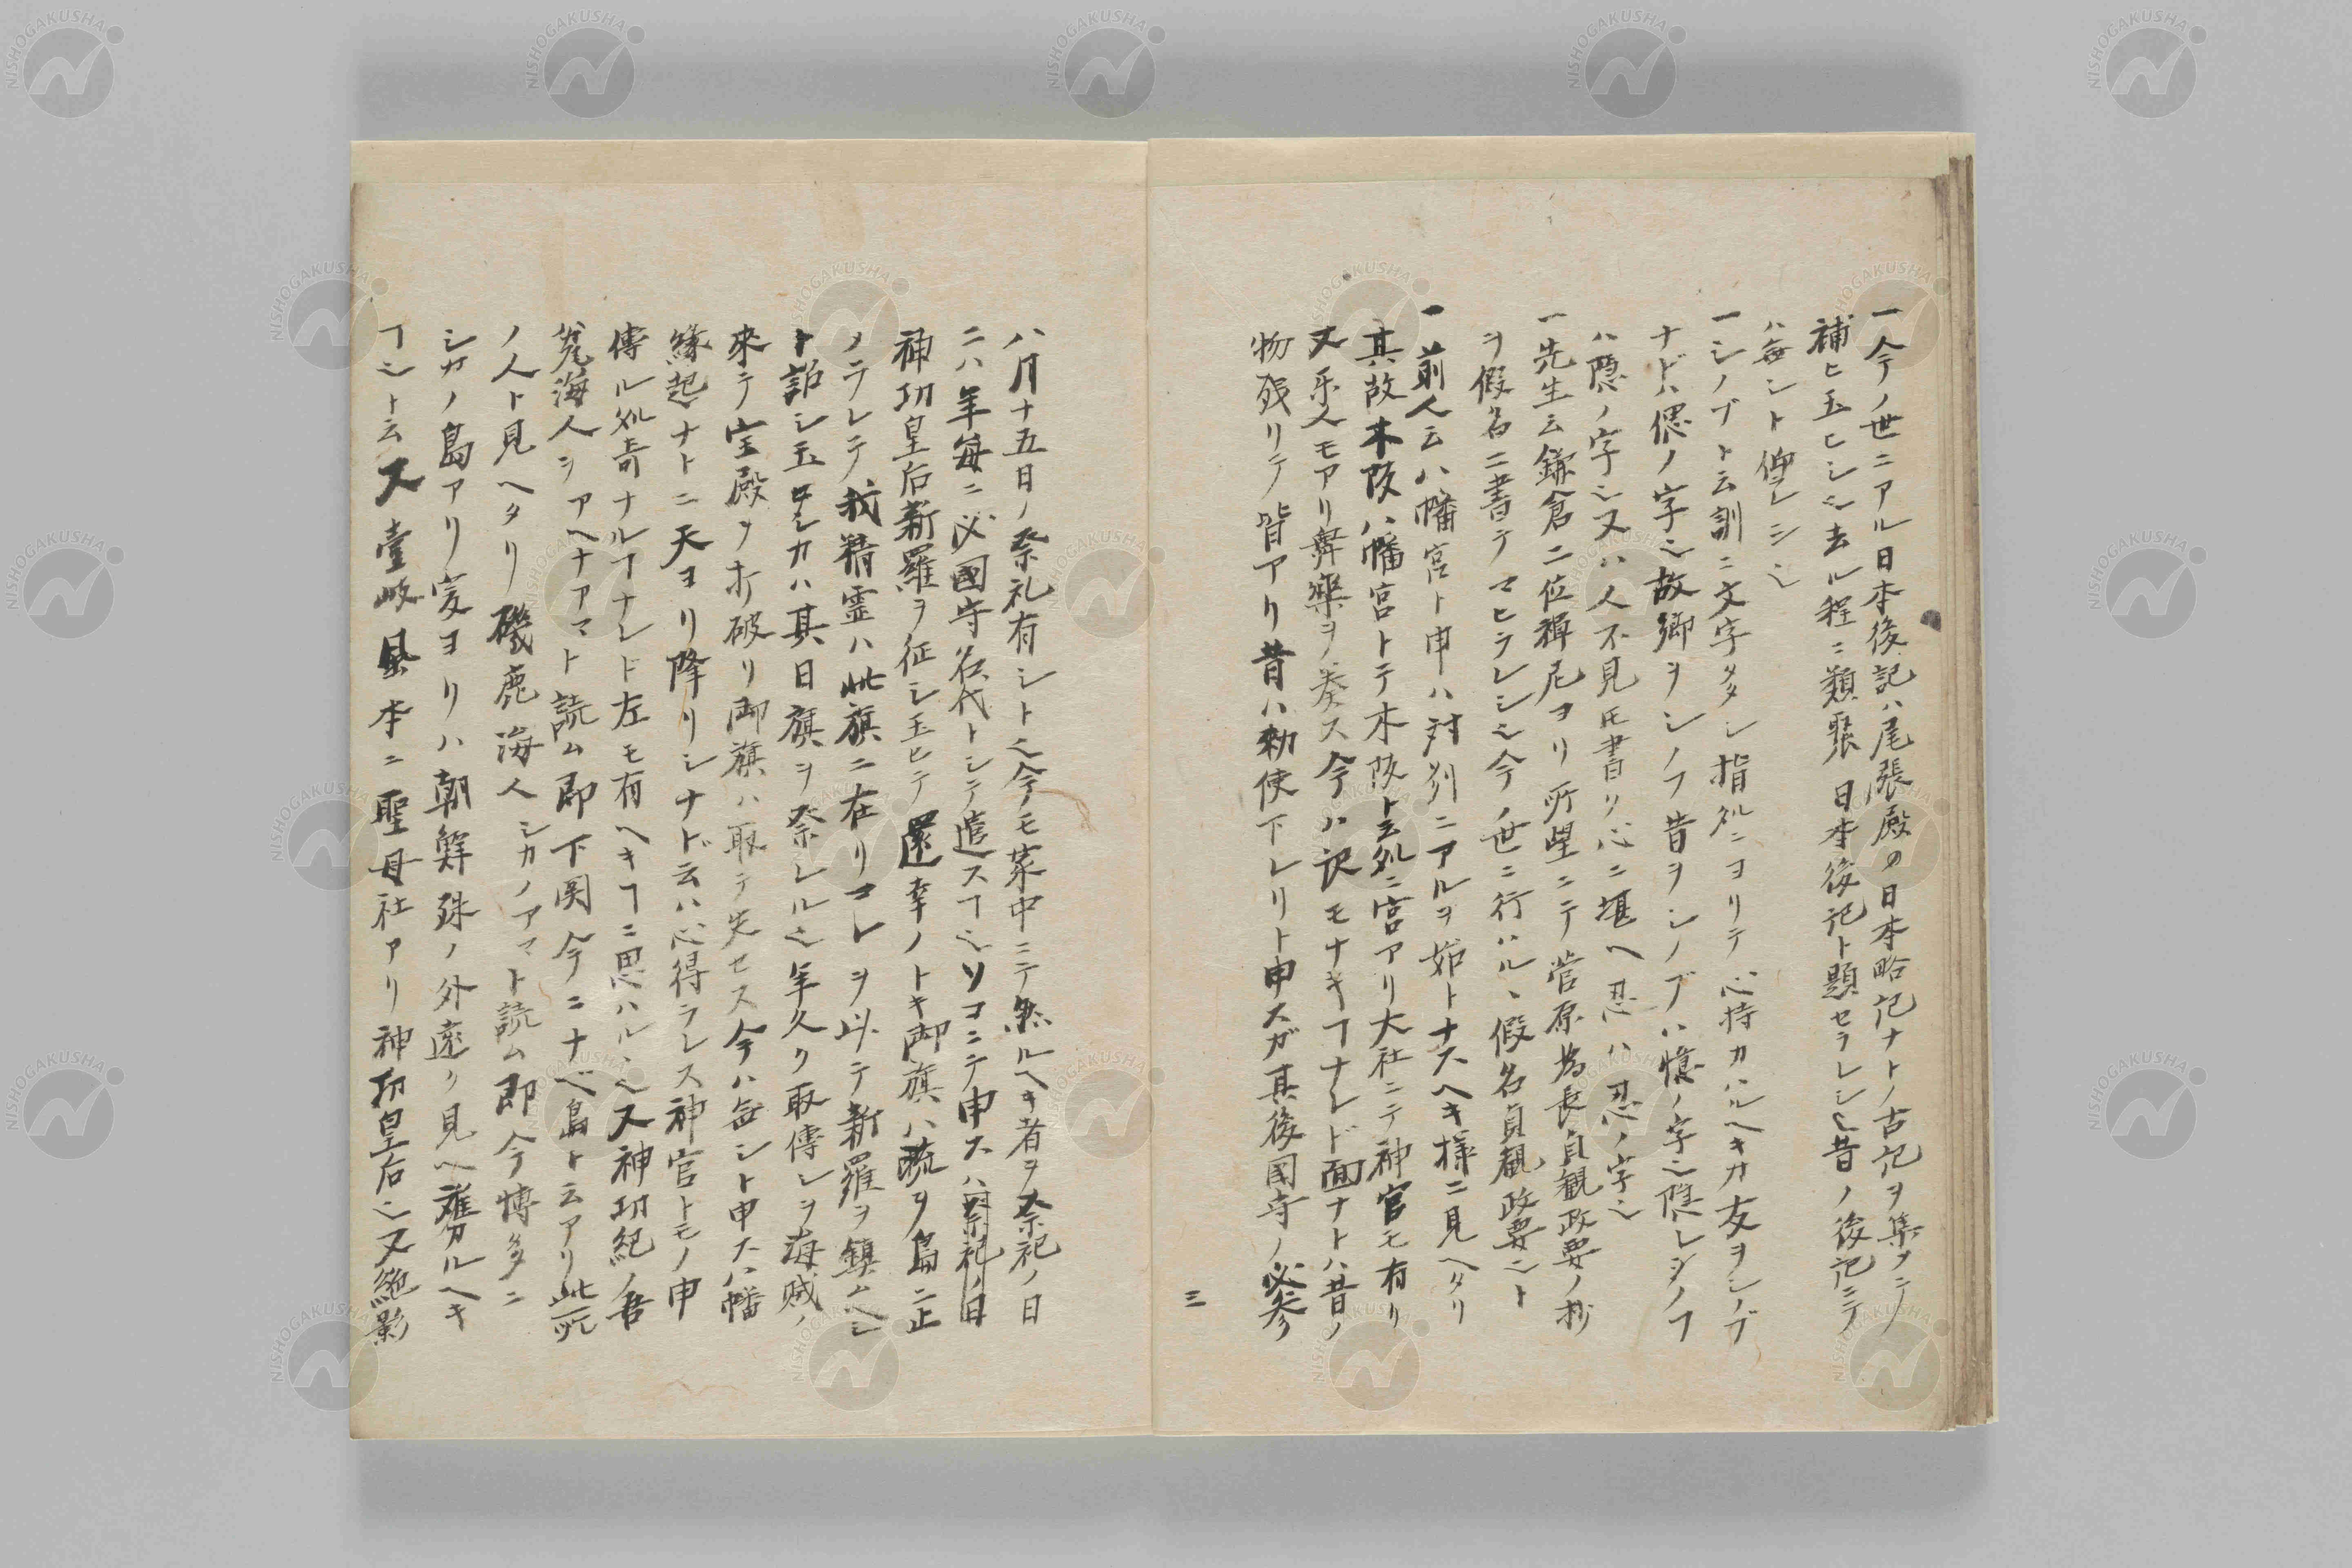 一今ノ世ニアル日本後記ハ尾張殿ヨ日本略記ナトノ古記ヲ集メテ
補ヒ玉ヒシ也去ル程ニ類聚日本後記ト題セラレシ也昔ノ後記ニテ
ハ毎シト仰レシ也
一シノブト云訓ニ文字多シ指処ニヨリテ心持カハルヘキカ友ヲシノブ
ナドハ偲ノ字也故郷ヲシノフ昔ヲシノブハ憶ノ字也隠レシノフ
ハ隠ノ字也又ハ人不見氏書リ心ニ堪ヘ忍ハ忍ノ字也
一先生云鎌倉二位禅尼ヨリ所望ニテ菅原為長貞観政要ノ抄
ヲ假名ニ書テマヒラレシ也今ノ世ニ行ハル丶假名貞観政要也ト
一前人云八幡宮ト申ハ対州ニアルヲ始トナスヘキ様ニ見ヘタリ
其故木阪八幡宮トテ木阪ト云処ニ宮アリ大社ニテ神官モ有リ
又乐人モアリ舞樂ヲ奏ス今ハ沢モナキヿナレド面ナトハ昔ノ
物残リテ皆アリ昔ハ勅使下レリト申スガ其後国守ノ必参
三
八月十五日ノ祭礼有シト也今モ家中ニテ然ルヘキ者ヲ祭祀ノ日
ニハ年毎ニ必國守名代トシテ遣スヿ也ソコニテ申スハ祭祀ノ日
神功皇后新羅ヲ征シ玉ヒテ還幸ノトキ御旗ハ流ヲ島ニ止
メラレテ我精霊ハ此旗ニ在リコレヲ以テ新羅ヲ鎮ムヘシ
ト詔シ玉ヒシカハ其日旗ヲ祭レル也年久ク取傳シヲ海賊ノ
來テ宝殿ヲ打破リ御旗ハ取テ失セス今ハ無シト申ス八幡
縁起ナトニ天ヨリ降リシナド云ハ心得ラレス神官トモノ申
傳ル処奇ナルヿナレド左モ有ヘキヿニ思ハル也又神功紀ノ吾
瓮海人ヲアヘナアマト読ム即下関今ニナベ島ト云アリ此所
ノ人ト見ヘタリ磯鹿海人シカノアマト読ム即今博多ニ
シカノ島アリ爰ヨリハ朝鮮殊ノ外遠ク見ヘ難分ルヘキ
ヿ也ト云又壹岐風本ニ聖母社アリ神功皇后也又絶影